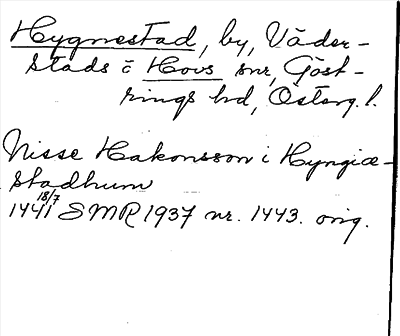 Hygnestad, by, Väder-
stads o Hovs snr, Göst-
rings hd, Österg. l.
Nisse Hakonsson i Hyngiæ-
stadhum
1441 18/7 SMR 1937 nr. 1443. orig.